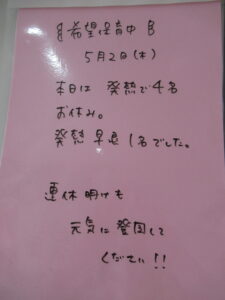 希望保育中
5月2日(木)
本日は 発熱で4名
お休み。
発熱 早退 1名でした。
連休明けも
元気に登園して
ください!!